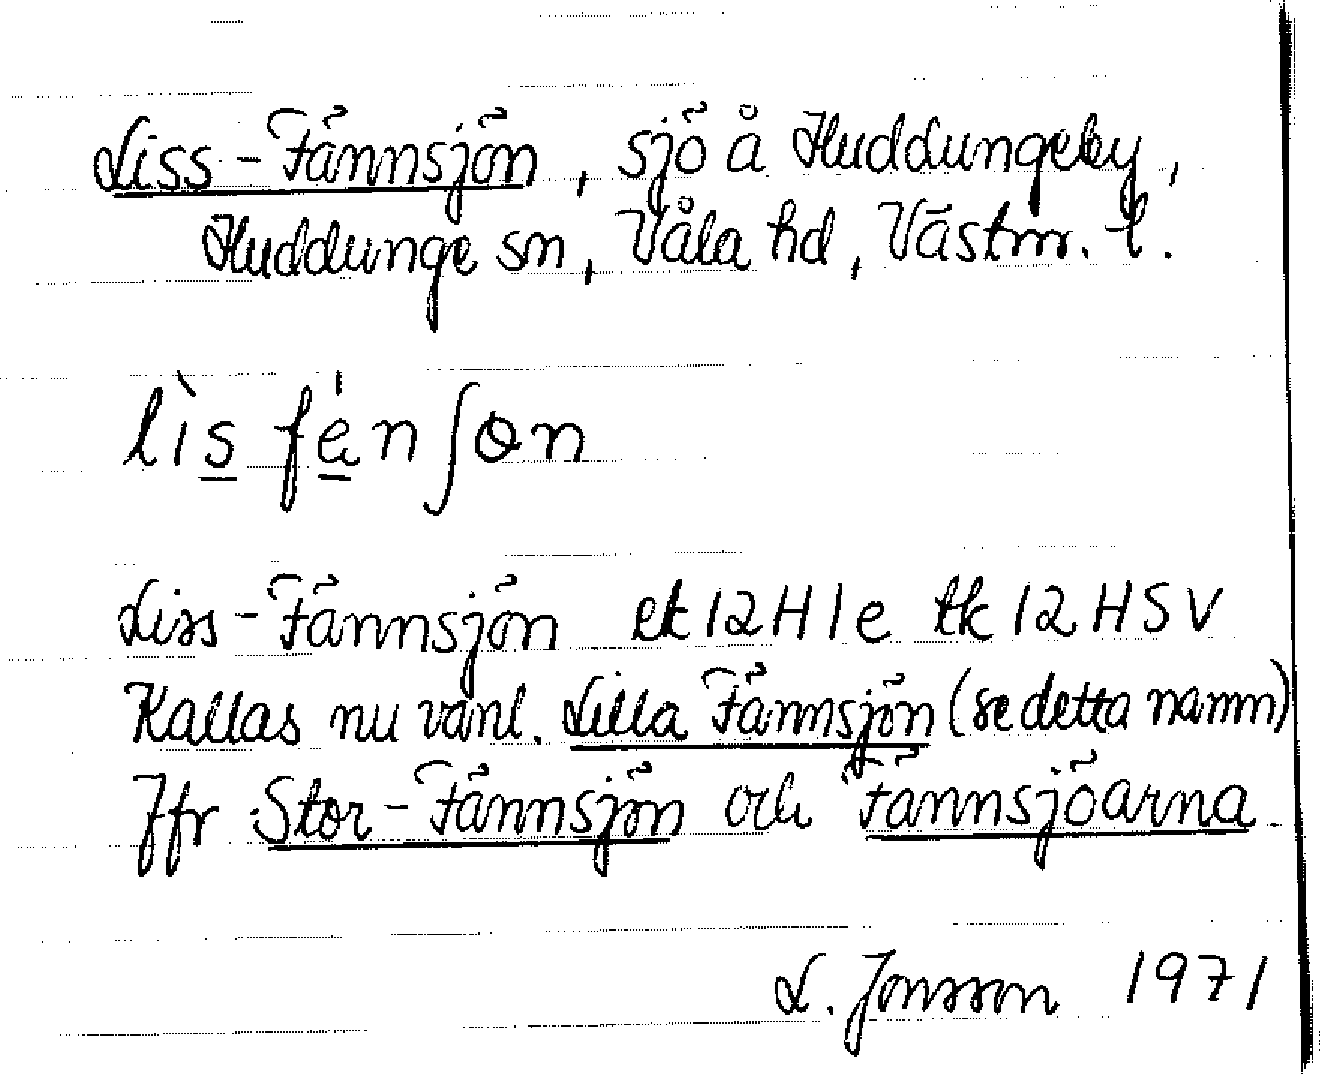 Liss-Fännsjön, sjö å Huddungeby,
Huddunge sn, Våla hd, Västm. l.
lìs fén ʃɵn
Liss-Fännsjön ek 12H1e tk 12HSV
Kallas nu vanl. Lilla Fännsjön (se detta namn)
Jfr Stor-Fännsjön och Fännsjöarna.
L. Jonsson 1971